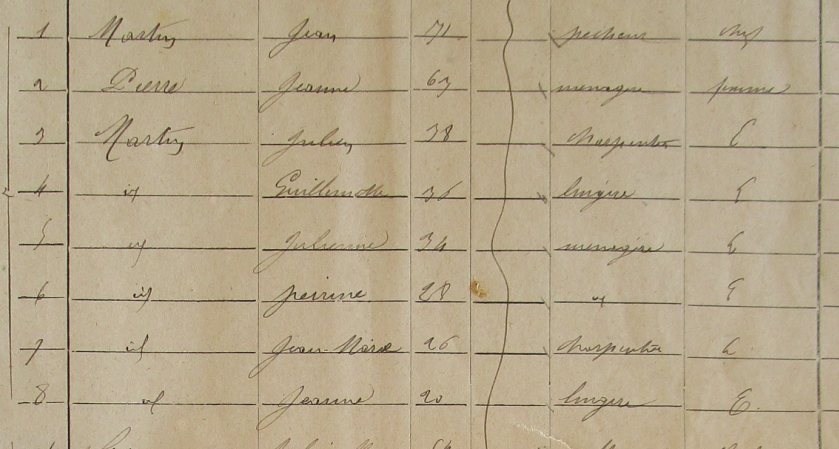 1 Martin Jean 71 pecheur chef
2 Pierre Jeanne 63 menagère femme
3 Martin Julien 38 charpentier E
4 id Guillemette 36 lingère E
5 id Julienne 34 menagère E
6 id perrine 28 id E
7 id Jean-Marie 26 charpentier E
8 id Jeanne 20 lingère E